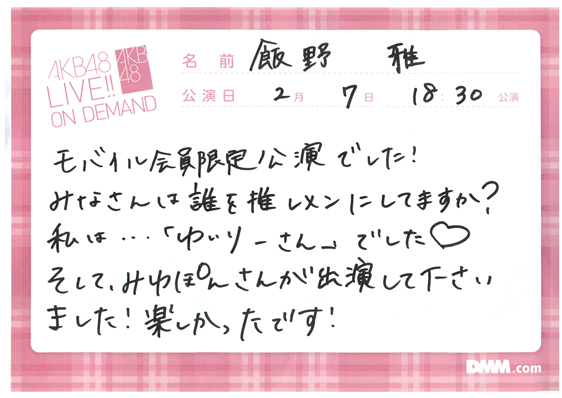 AKB48
LIVE!!
ON DEMAND
AKB
48
名前 飯野 雅
公演日 2月 7日 18:30 公演
モバイル会員限定公演でした!
みなさんは誰を推しメンにしてますか?
私は…「ゆいりーさん」でした♡
そして、みゆぽんさんが出演して下さい
ました!楽しかったです!
DMM.com